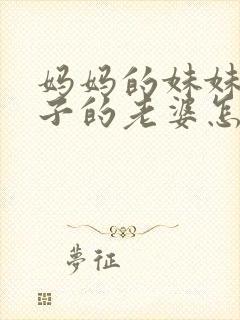 妈妈的妹妹
子的老婆怎
夢征